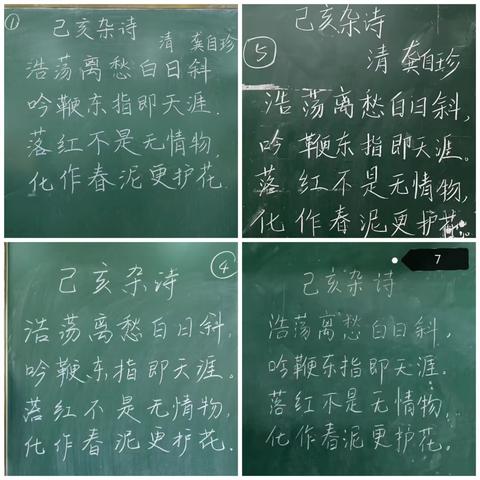 ①
己亥杂诗
清 龚自珍
浩荡离愁白日斜
吟鞭东指即天涯.
落红不是无情物,
化作春泥更护花.
⑤
己亥杂诗
清 龚自珍
浩荡离愁白日斜,
吟鞭东指即天涯。
落红不是无情物,
化作春泥更护花。
④
己亥杂诗
浩荡离愁白日斜,
吟鞭东指即天涯。
落红不是无情物,
化作春泥更护花.
7
己亥杂诗
浩荡离愁白日斜,
吟鞭东指即天涯.
落红不是无情物,
化作春泥更护花。